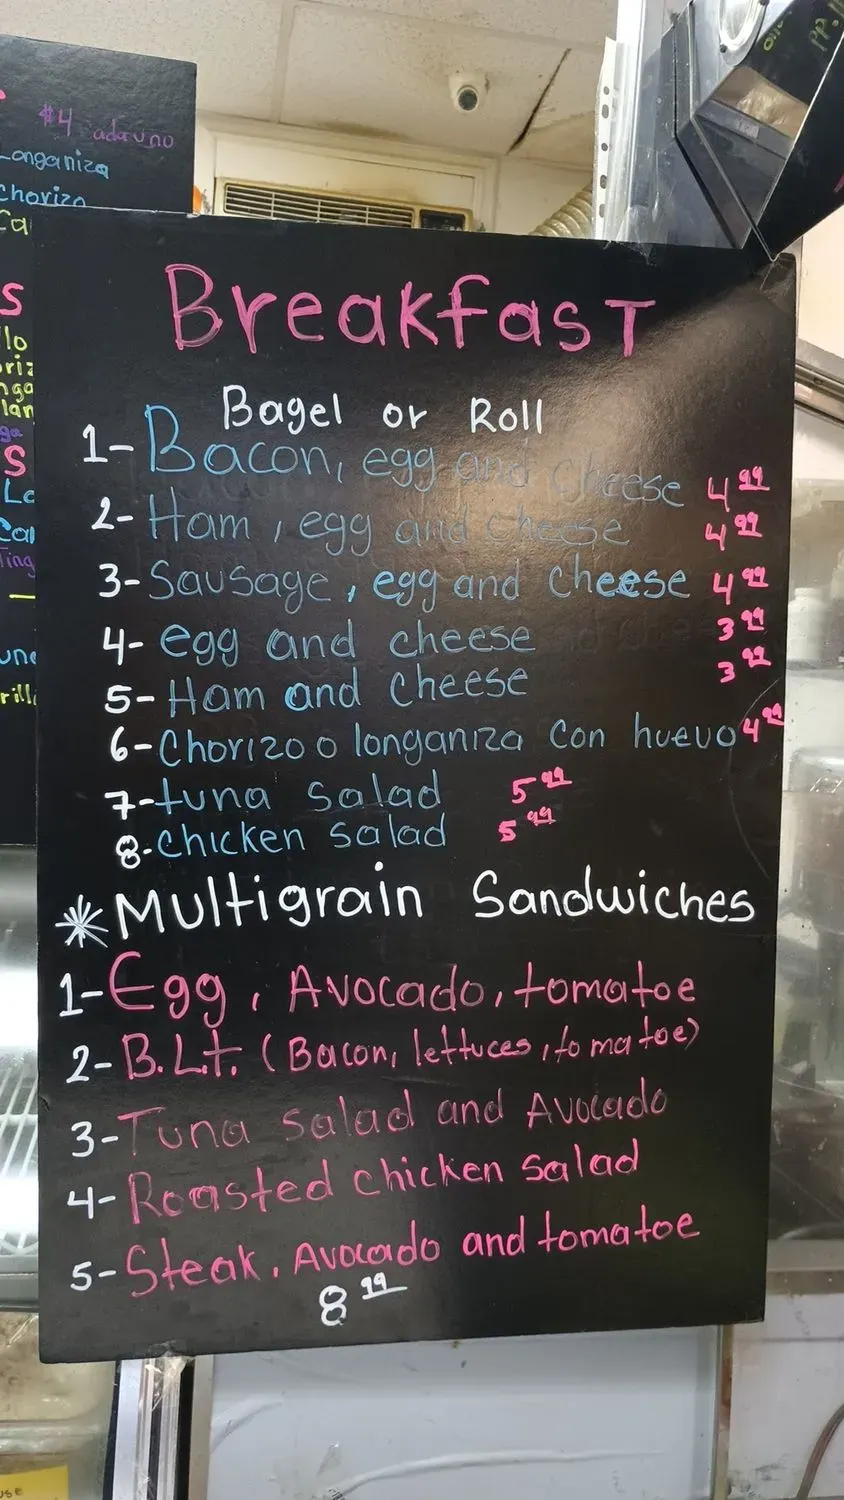 $4 cada uno
Longaniza
Chorizo
Breakfast
Bagel or Roll
1- Bacon, egg and cheese 4 99
2- Ham, egg and cheese 4 99
3- Sausage, egg and cheese 4 99
4- egg and cheese 3 99
5- Ham and cheese 3 99
6- Chorizo o longaniza con huevo 4 99
7- tuna salad 5 99
8- chicken salad 5 99
* Multigrain Sandwiches
1- Egg, Avocado, tomatoe
2- B.L.t. (Bacon, lettuces, tomatoe)
3- Tuna salad and Avocado
4- Roasted chicken salad
5- Steak, Avocado and tomatoe
8 99